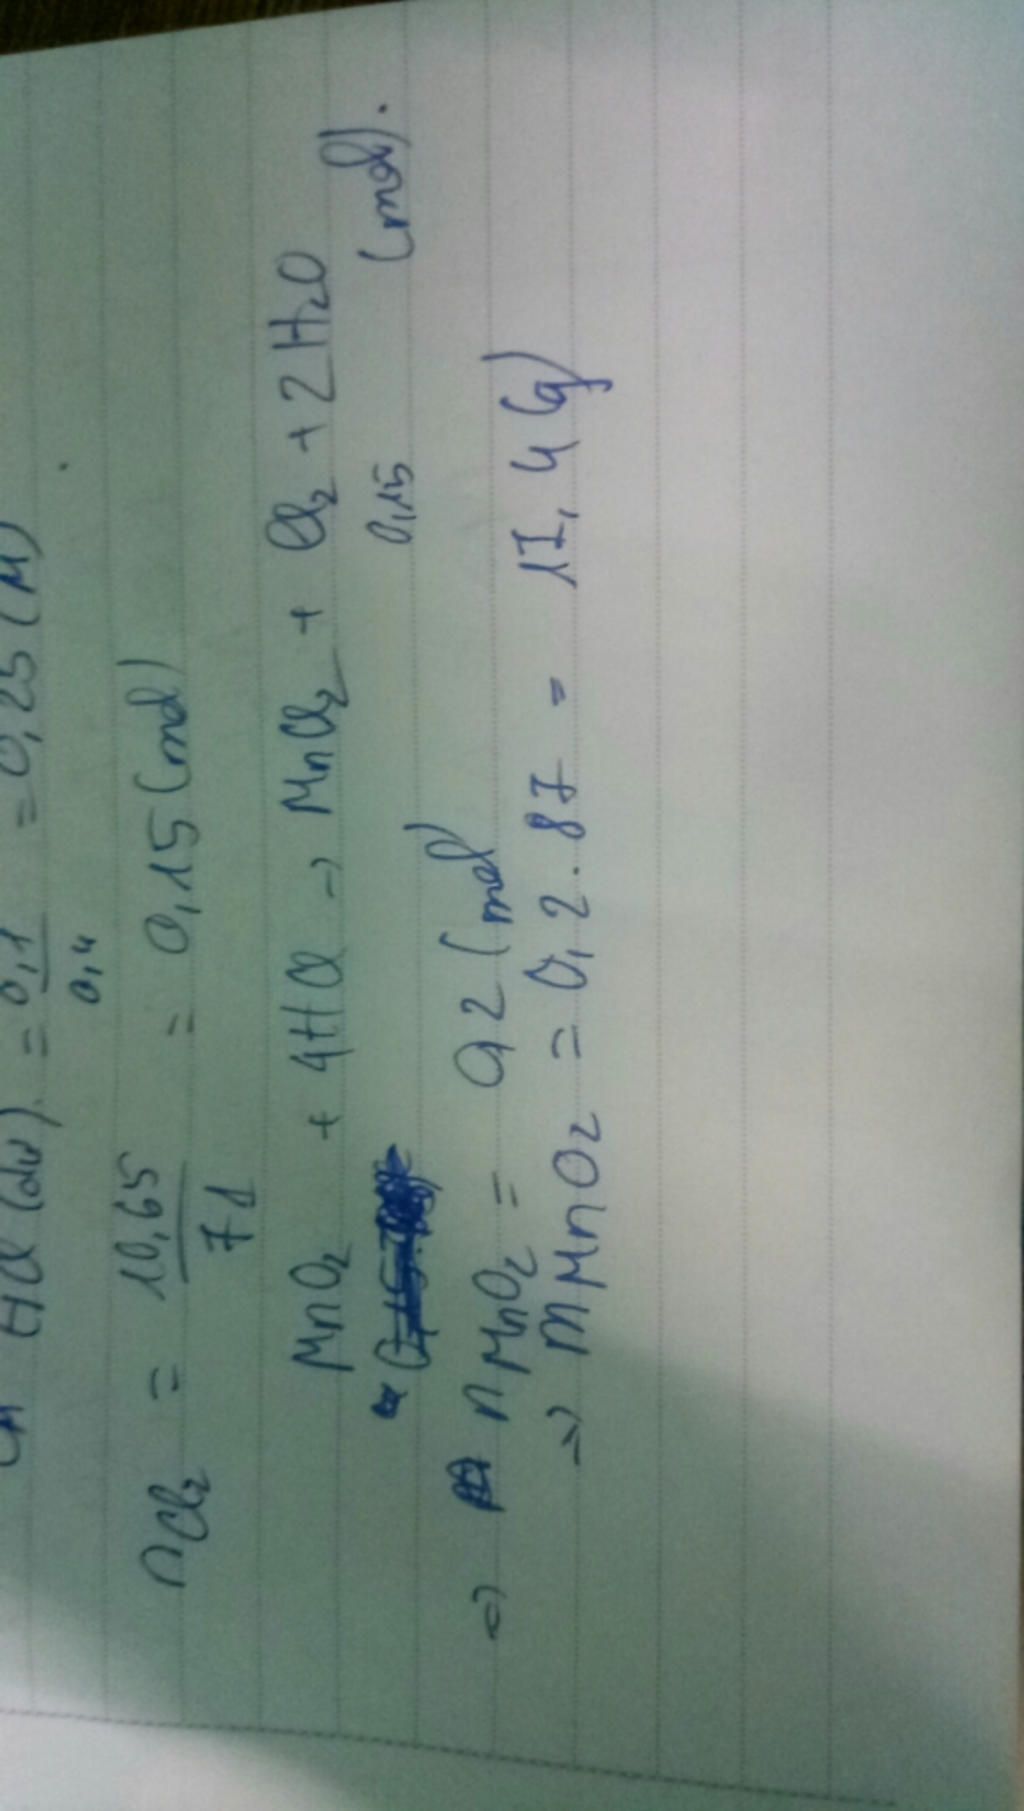 HCl (dư) = 0,1 / 0,4 = 0,25 (M)
nCl₂ = 10,65 / 71 = 0,15 (mol)
MnO₂ + 4HCl → MnCl₂ + Cl₂ + 2H₂O
0,15 (mol).
⇒ nMnO₂ = 0,2 (mol)
⇒ mMnO₂ = 0,2 . 87 = 17,4 (g)